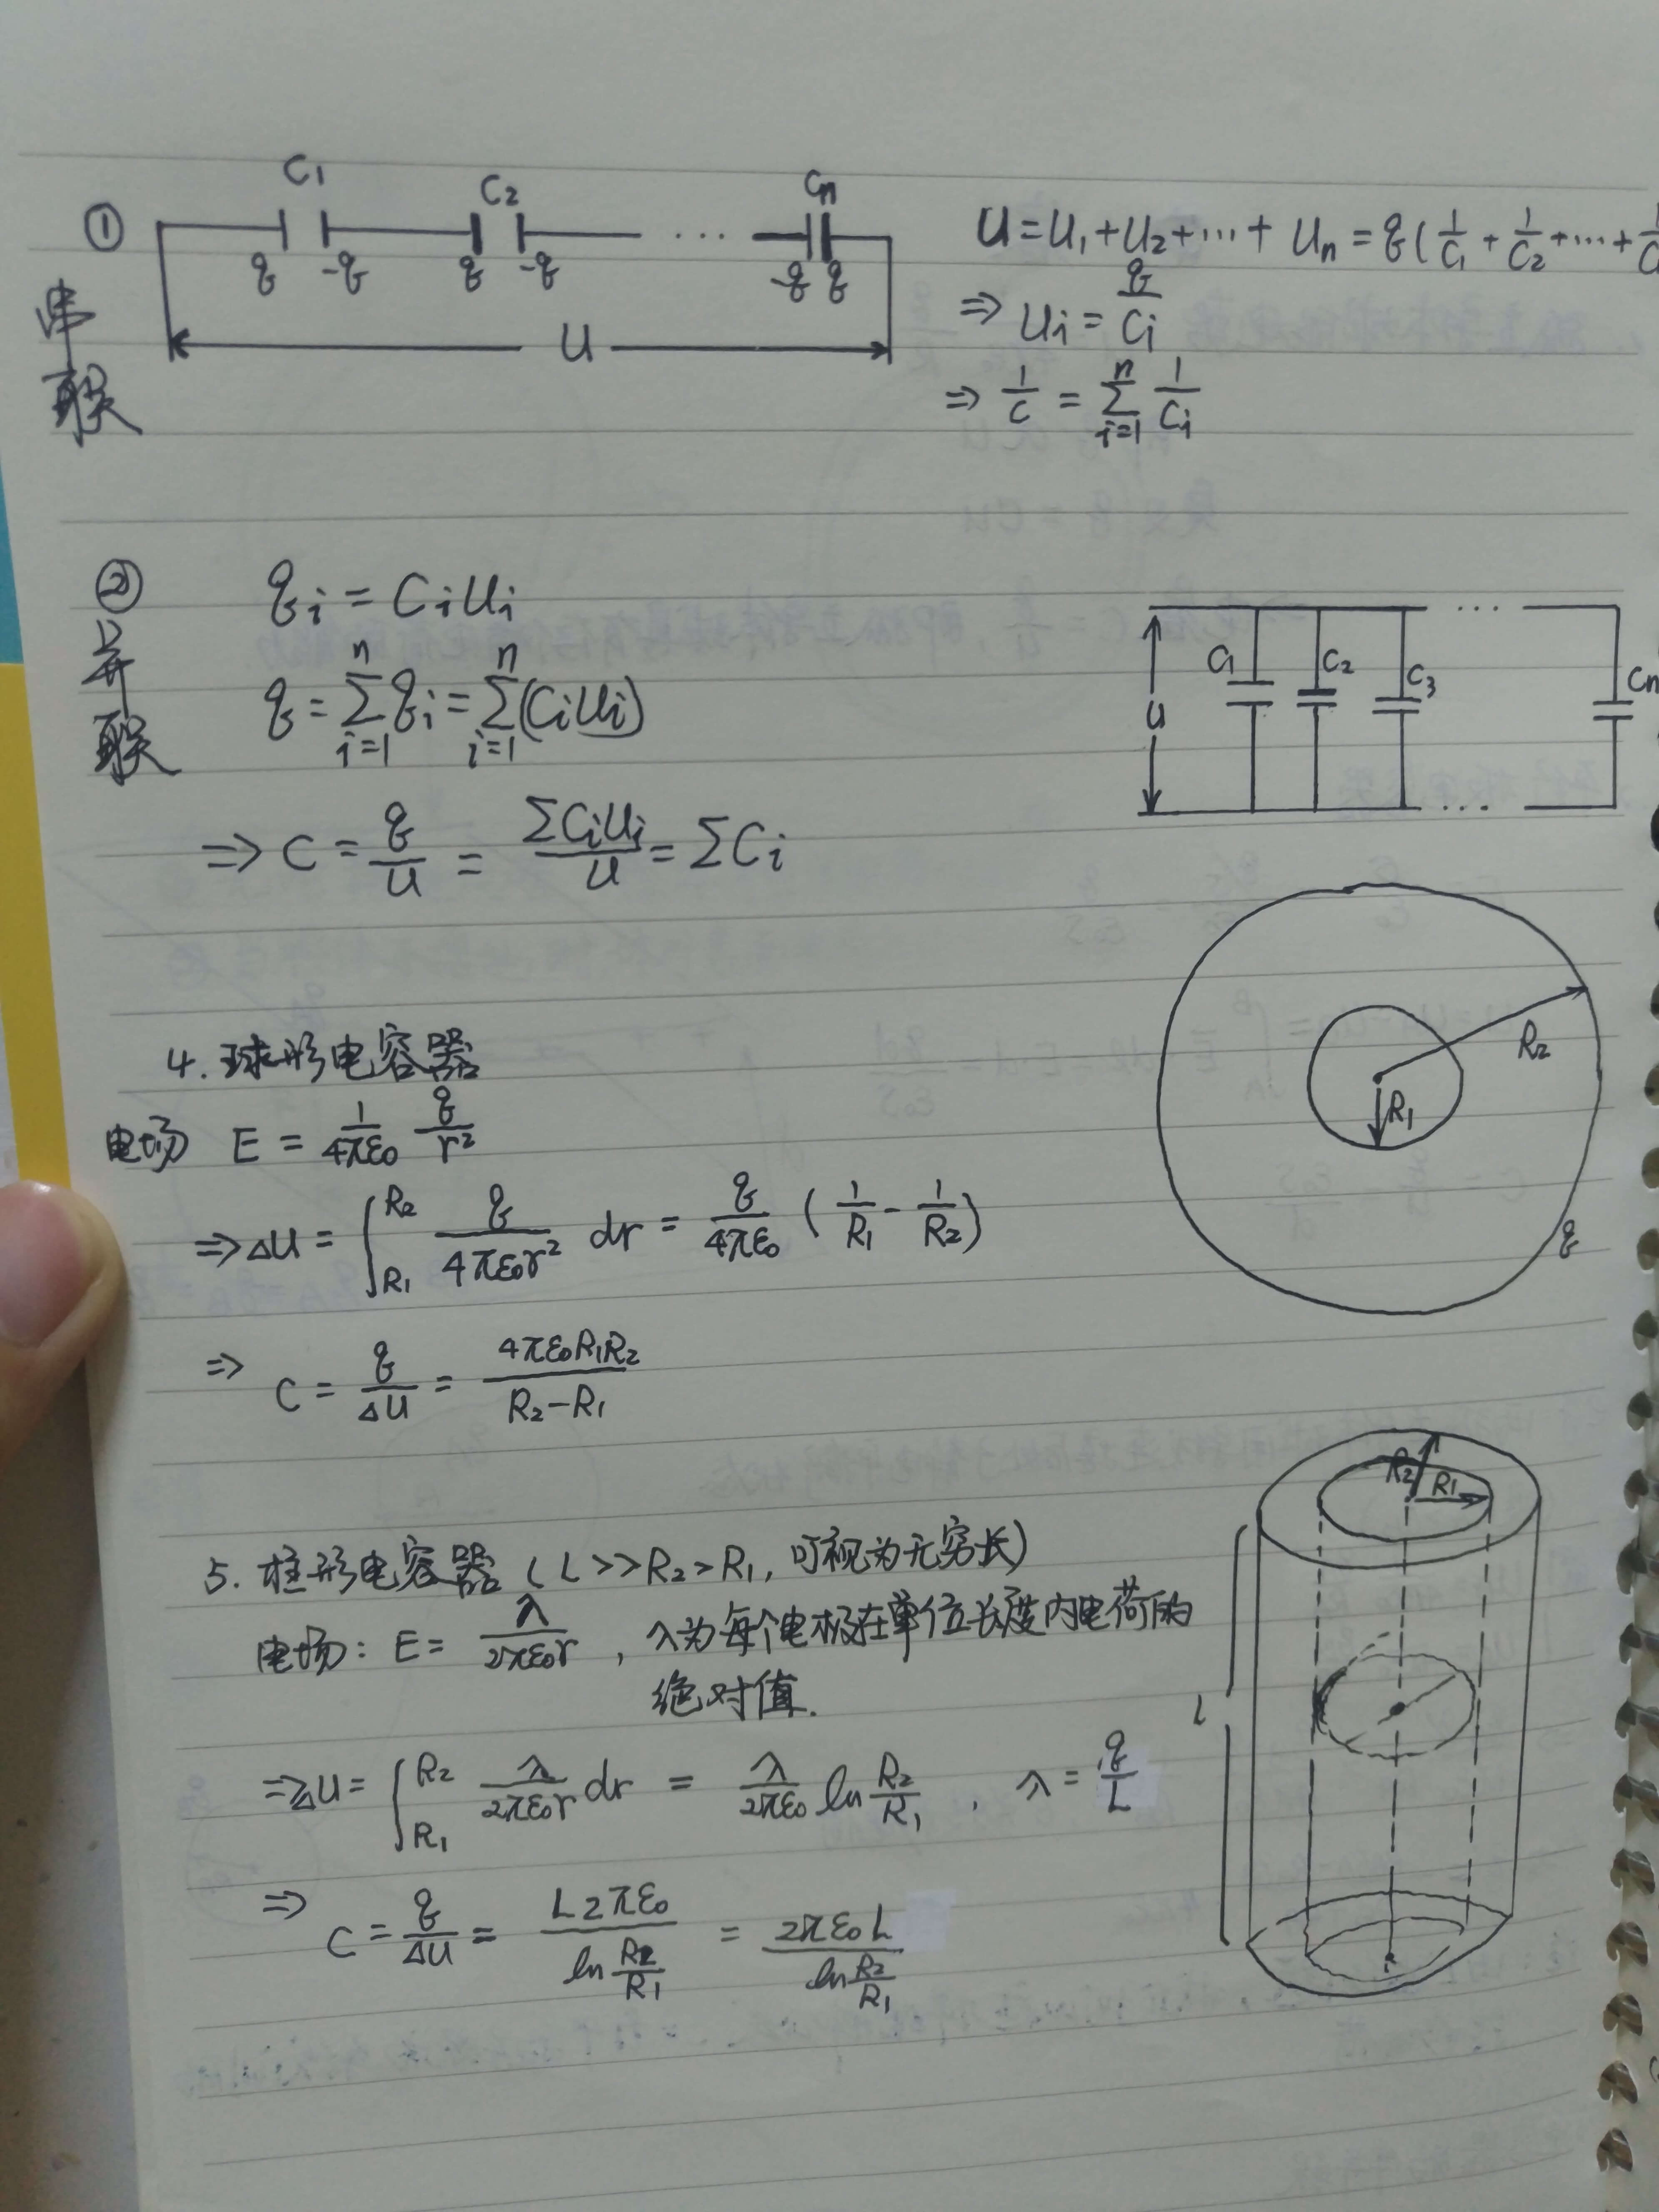 ① 串联
C₁ C₂ ... Cn
q -q q -q -q q
U
U = U₁ + U₂ + ... + Un = q(1/C₁ + 1/C₂ + ... + 1/C
⇒ Ui = q/Ci
⇒ 1/C = Σ_{i=1}^{n} 1/Ci
② 并联
qi = CiUi
q = Σ_{i=1}^{n} qi = Σ_{i=1}^{n} (CiUi)
⇒ C = q/U = ΣCiUi/U = ΣCi
U C₁ C₂ C₃ ... Cn
4. 球形电容器
电场 E = 1/4πε₀ q/r²
⇒ ΔU = ∫_{R₁}^{R₂} q/4πε₀r² dr = q/4πε₀ (1/R₁ - 1/R₂)
⇒ C = q/ΔU = 4πε₀R₁R₂/R₂-R₁
R₂
R₁
q
5. 柱形电容器 (L>>R₂>R₁, 可视为无穷长)
电场: E = λ/2πε₀r , λ为每个电极在单位长度内电荷的
绝对值.
⇒ ΔU = ∫_{R₁}^{R₂} λ/2πε₀r dr = λ/2πε₀ ln R₂/R₁ , λ = q/L
⇒ C = q/ΔU = L2πε₀/ln R₂/R₁ = 2πε₀L/ln R₂/R₁
R₂ R₁
l